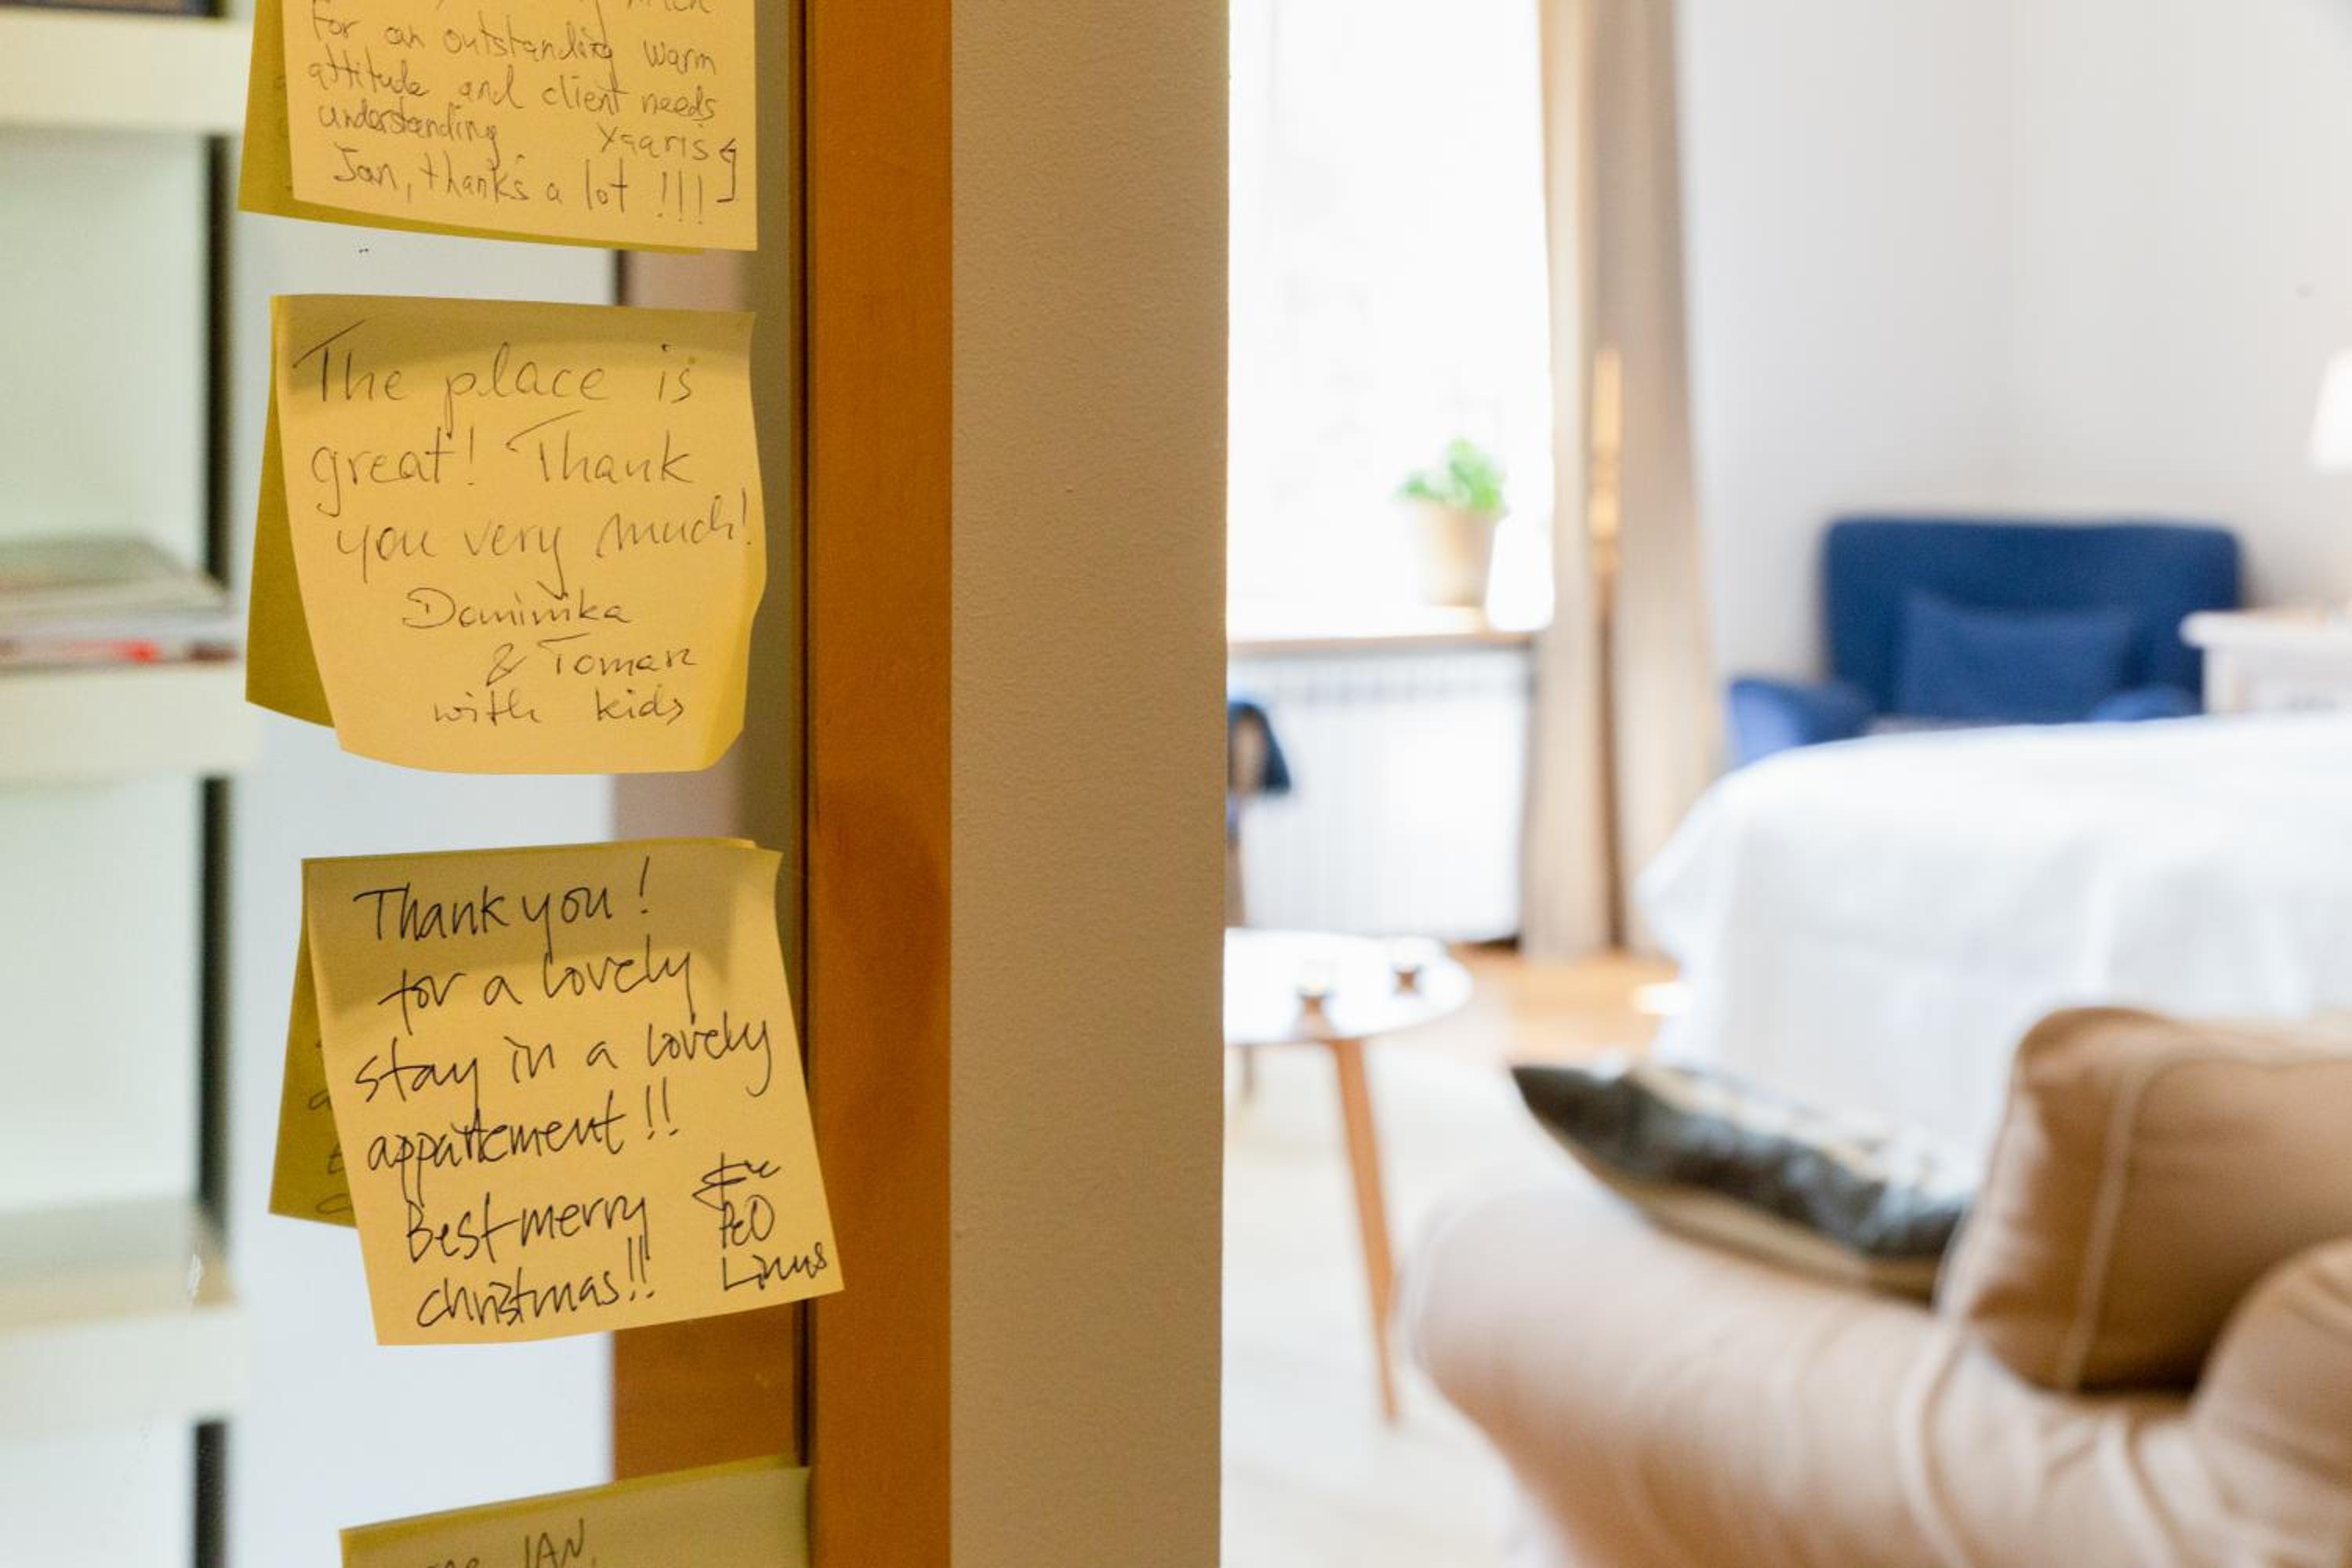 for an outstanding warm
attitude and client needs
understanding.
Jan, thanks a lot !!!
The place is
great! Thank
you very much!
Dominika
& Tomek
with kids
Thank you!
for a lovely
stay in a lovely
appartement!!
Best merry
christmas!!
PeO
Linus
JAN,